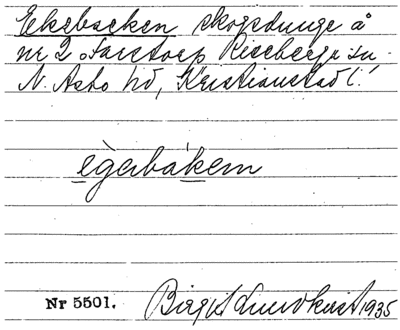 Ekebacken skogsdunge å
nr 2 Farstorp Riseberga sn.
N. Åsbo hd, Kristianstad l.
ègerbákem
Nr 5501. Birgit Lundkvist 1935